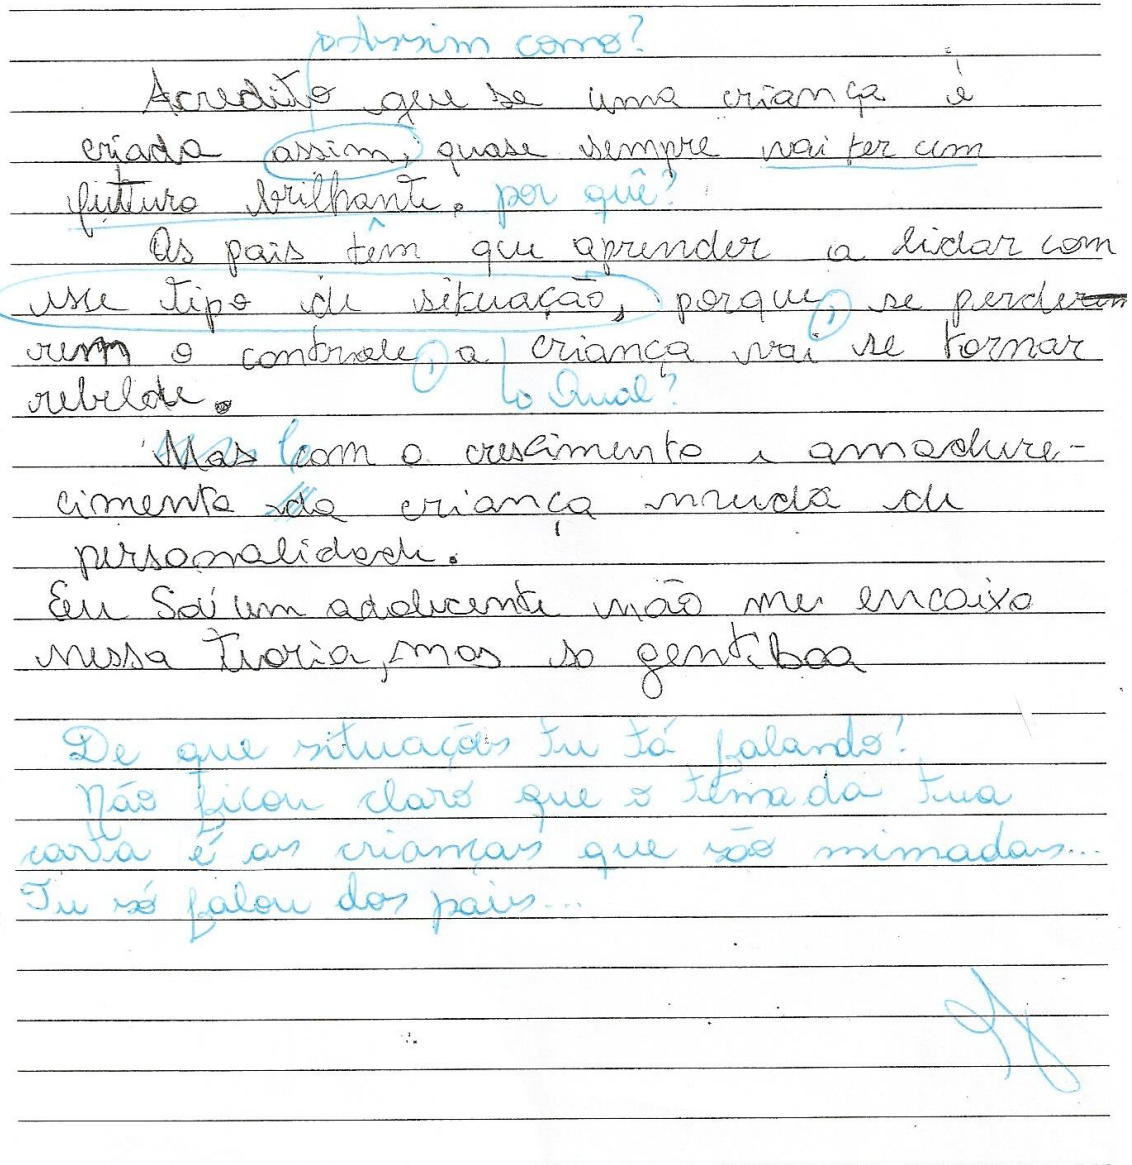 Assim como?
Acredito que se uma criança é
criada assim, quase sempre vai ter um
futturo brilhante. por quê?
Os pais têm que aprender a lidar com
esse tipo de situação, porque, se perde
rem o controle, a criança vai se tornar
rebelde. Qual?
Mas com o crescimento e amadure-
cimento da criança muda de
personalidade.
Eu Soú um adolecente não me encaixo
nessa teoria, mas so gentiboa
De que situações tu tá falando?
Não ficou claro que o tema da tua
carta é as crianças que são mimadas...
Tu só falou dos pais...